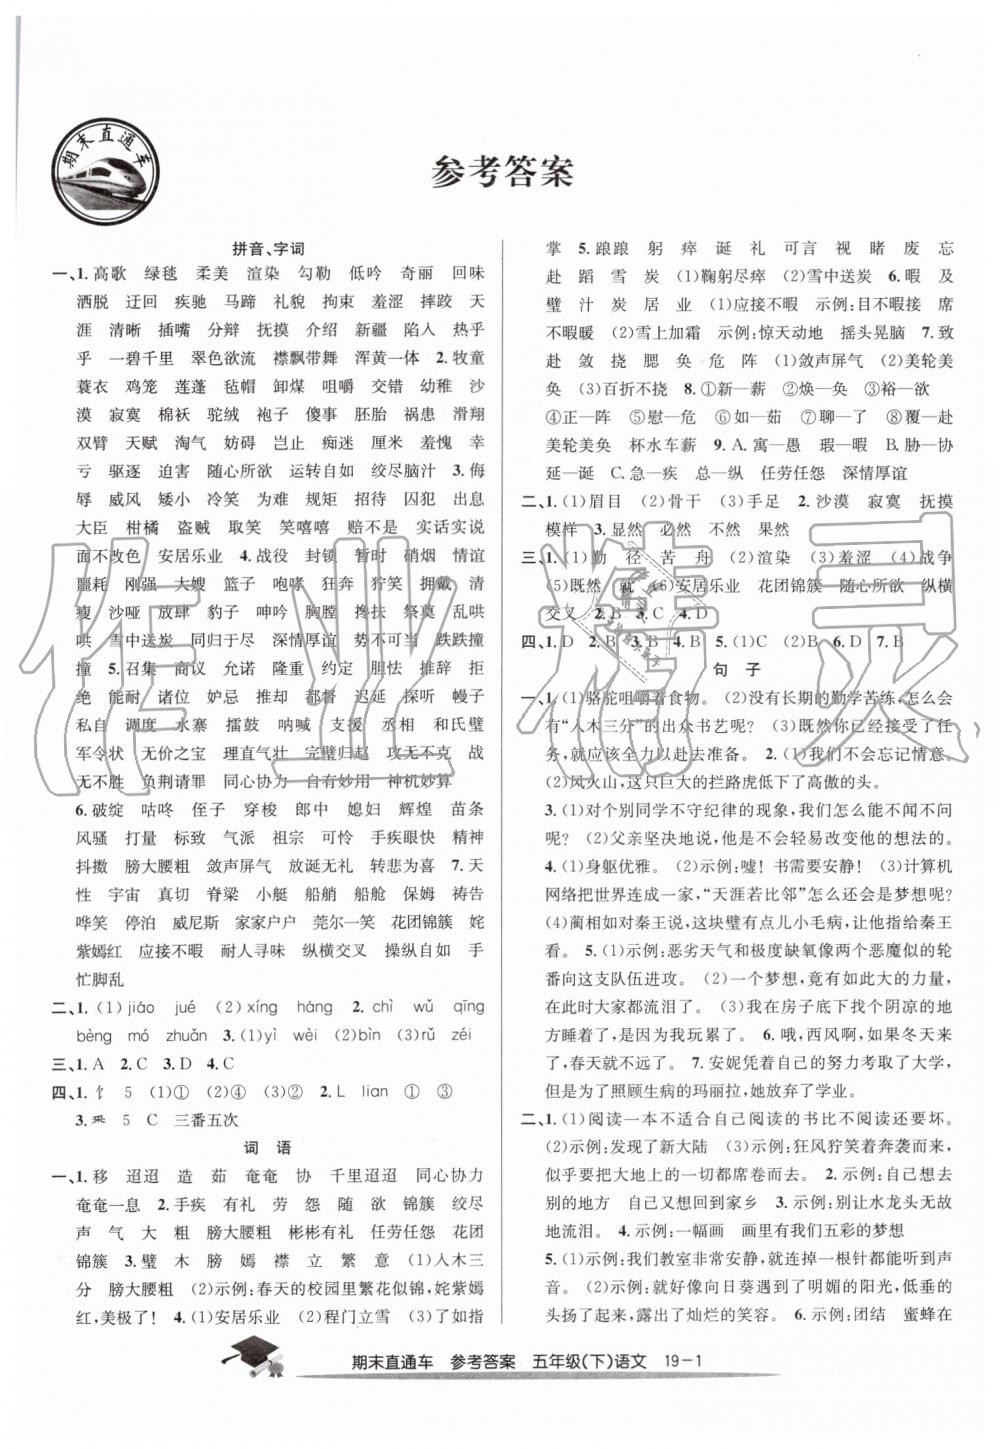 期末直通车
参考答案
拼音、字词
一、1. 高歌 绿毯 柔美 渲染 勾勒 低吟 奇丽 回味
洒脱 迂回 疾驰 马蹄 礼貌 拘束 羞涩 摔跤 天
涯 清晰 插嘴 分辩 抚摸 介绍 新疆 陷入 热乎
乎 一碧千里 翠色欲流 襟飘带舞 浑黄一体 2. 牧童
蓑衣 鸡笼 莲蓬 毡帽 卸煤 咀嚼 交错 幼稚 沙
漠 寂寞 棉袄 驼绒 袍子 傻事 胚胎 祸患 滑翔
双臂 天赋 淘气 妨碍 岂止 痴迷 厘米 羞愧 幸
亏 驱逐 迫害 随心所欲 运转自如 绞尽脑汁 3. 侮
辱 威风 矮小 冷笑 为难 规矩 招待 囚犯 出息
大臣 柑橘 盗贼 取笑 笑嘻嘻 赔不是 实话实说
面不改色 安居乐业 4. 战役 封锁 暂时 硝烟 情谊
噩耗 刚强 大嫂 篮子 咆哮 狂奔 狞笑 拥戴 清
瘦 沙哑 放肆 豹子 呻吟 胸膛 搀扶 祭奠 乱哄
哄 雪中送炭 同归于尽 深情厚谊 势不可当 跌跌撞
撞 5. 召集 商议 允诺 隆重 约定 胆怯 推辞 拒
绝 能耐 诸位 妒忌 推却 都督 迟延 探听 幔子
私自 调度 水寨 擂鼓 呐喊 支援 丞相 和氏璧
军令状 无价之宝 理直气壮 完璧归赵 攻无不克 战
无不胜 负荆请罪 同心协力 自有妙用 神机妙算
6. 破绽 咕咚 侄子 穿梭 郎中 媳妇 辉煌 苗条
风骚 打量 标致 气派 祖宗 可怜 手疾眼快 精神
抖擞 膀大腰粗 敛声屏气 放诞无礼 转悲为喜 7. 天
性 宇宙 真切 脊梁 小艇 船艄 船舱 保姆 祷告
哗笑 停泊 威尼斯 家家户户 莞尔一笑 花团锦簇 姹
紫嫣红 应接不暇 耐人寻味 纵横交叉 操纵自如 手
忙脚乱
二、1. (1)jiáo jué (2)xíng háng 2. chì wǔ qīng
bèng mó zhuǎn 3. (1)yì wèi (2)bìn (3)rǔ zéi
三、1. A 2. C 3. D 4. C
四、1. 饣 5 (1)① (2)④ (3)② 2. L lian ① ③
3. 釆 5 C 三番五次
词 语
一、1. 移 迢迢 造 茹 奄奄 协 千里迢迢 同心协力
奄奄一息 2. 手疾 有礼 劳 怨 随 欲 锦簇 绞尽
声 气 大 粗 膀大腰粗 彬彬有礼 任劳任怨 花团
锦簇 3. 璧 木 膀 嫣 襟 立 繁 意 (1)入木三
分 膀大腰粗 (2)示例:春天的校园里繁花似锦,姹紫嫣
红,美极了! 4. (1)安居乐业 (2)程门立雪 (3)了如指
掌 5. 踉踉 躬 瘁 诞 礼 可言 视 睹 废 忘
赴 蹈 雪 炭 (1)鞠躬尽瘁 (2)雪中送炭 6. 暇 及
璧 汁 炭 居 业 (1)应接不暇 示例:目不暇接 席
不暇暖 (2)雪上加霜 示例:惊天动地 摇头晃脑 7. 致
赴 敛 挠 腮 奂 危 阵 (1)敛声屏气 (2)美轮美
奂 (3)百折不挠 8. ①新—薪 ②焕—奂 ③裕—欲
④正—阵 ⑤慰—危 ⑥如—茹 ⑦聊—了 ⑧覆—赴
美轮美奂 杯水车薪 9. A. 寓—愚 瑕—暇 B. 胁—协
延—诞 C. 急—疾 总—纵 任劳任怨 深情厚谊
二、1. (1)眉目 (2)骨干 (3)手足 2. 沙漠 寂寞 抚摸
模样 3. 显然 必然 不然 果然
三、1. (1)勤 径 苦 舟 (2)渲染 (3)羞涩 (4)战争
(5)既然 就 (6)安居乐业 花团锦簇 随心所欲 纵横
交叉 2. B 3. C 4. D
四、1. D 2. B 3. B 4. B 5. (1)C (2)B 6. D 7. B
句 子
一、1. (1)骆驼咀嚼着食物。 (2)没有长期的勤学苦练,怎么会
有“入木三分”的出众书艺呢? (3)既然你已经接受了任
务,就应该全力以赴去准备。 2. (1)我们不会忘记情意。
(2)风火山,这只巨大的拦路虎低下了高傲的头。
3. (1)对个别同学不守纪律的现象,我们怎么能不闻不问
呢? (2)父亲坚决地说,他是不会轻易改变他的想法的。
4. (1)身躯优雅。 (2)示例:嘘! 书需要安静! (3)计算机
网络把世界连成一家,“天涯若比邻”怎么还会是梦想呢?
(4)蔺相如对秦王说,这块璧有点儿小毛病,让他指给秦王
看。 5. (1)示例:恶劣天气和极度缺氧像两个恶魔似的轮
番向这支队伍进攻。 (2)一个梦想,竟有如此大的力量,
在此时大家都流泪了。 (3)我在房子底下找个阴凉的地
方睡着了,是因为我玩累了。 6. 哦,西风啊,如果冬天来
了,春天就不远了。 7. 安妮凭着自己的努力考取了大学,
但是为了照顾生病的玛丽拉,她放弃了学业。
二、1. (1)阅读一本不适合自己阅读的书比不阅读还要坏。
(2)示例:发现了新大陆 (3)示例:狂风狞笑着奔袭而来,
似乎要把大地上的一切都席卷而去 2. 示例:自己去到
别的地方 自己又回到家乡 3. 示例:别让水龙头无故
地流泪。 4. 示例:一幅画 画里有我们五彩的梦想
5. (1)示例:我们教室非常安静,就连掉一根针都能听到声
音。 (2)示例:就好像向日葵遇到了明媚的阳光,低垂的
头扬了起来,露出了灿烂的笑容。 6. 示例:团结 蜜蜂在
期末直通车 参考答案 五年级(下)语文 19-1